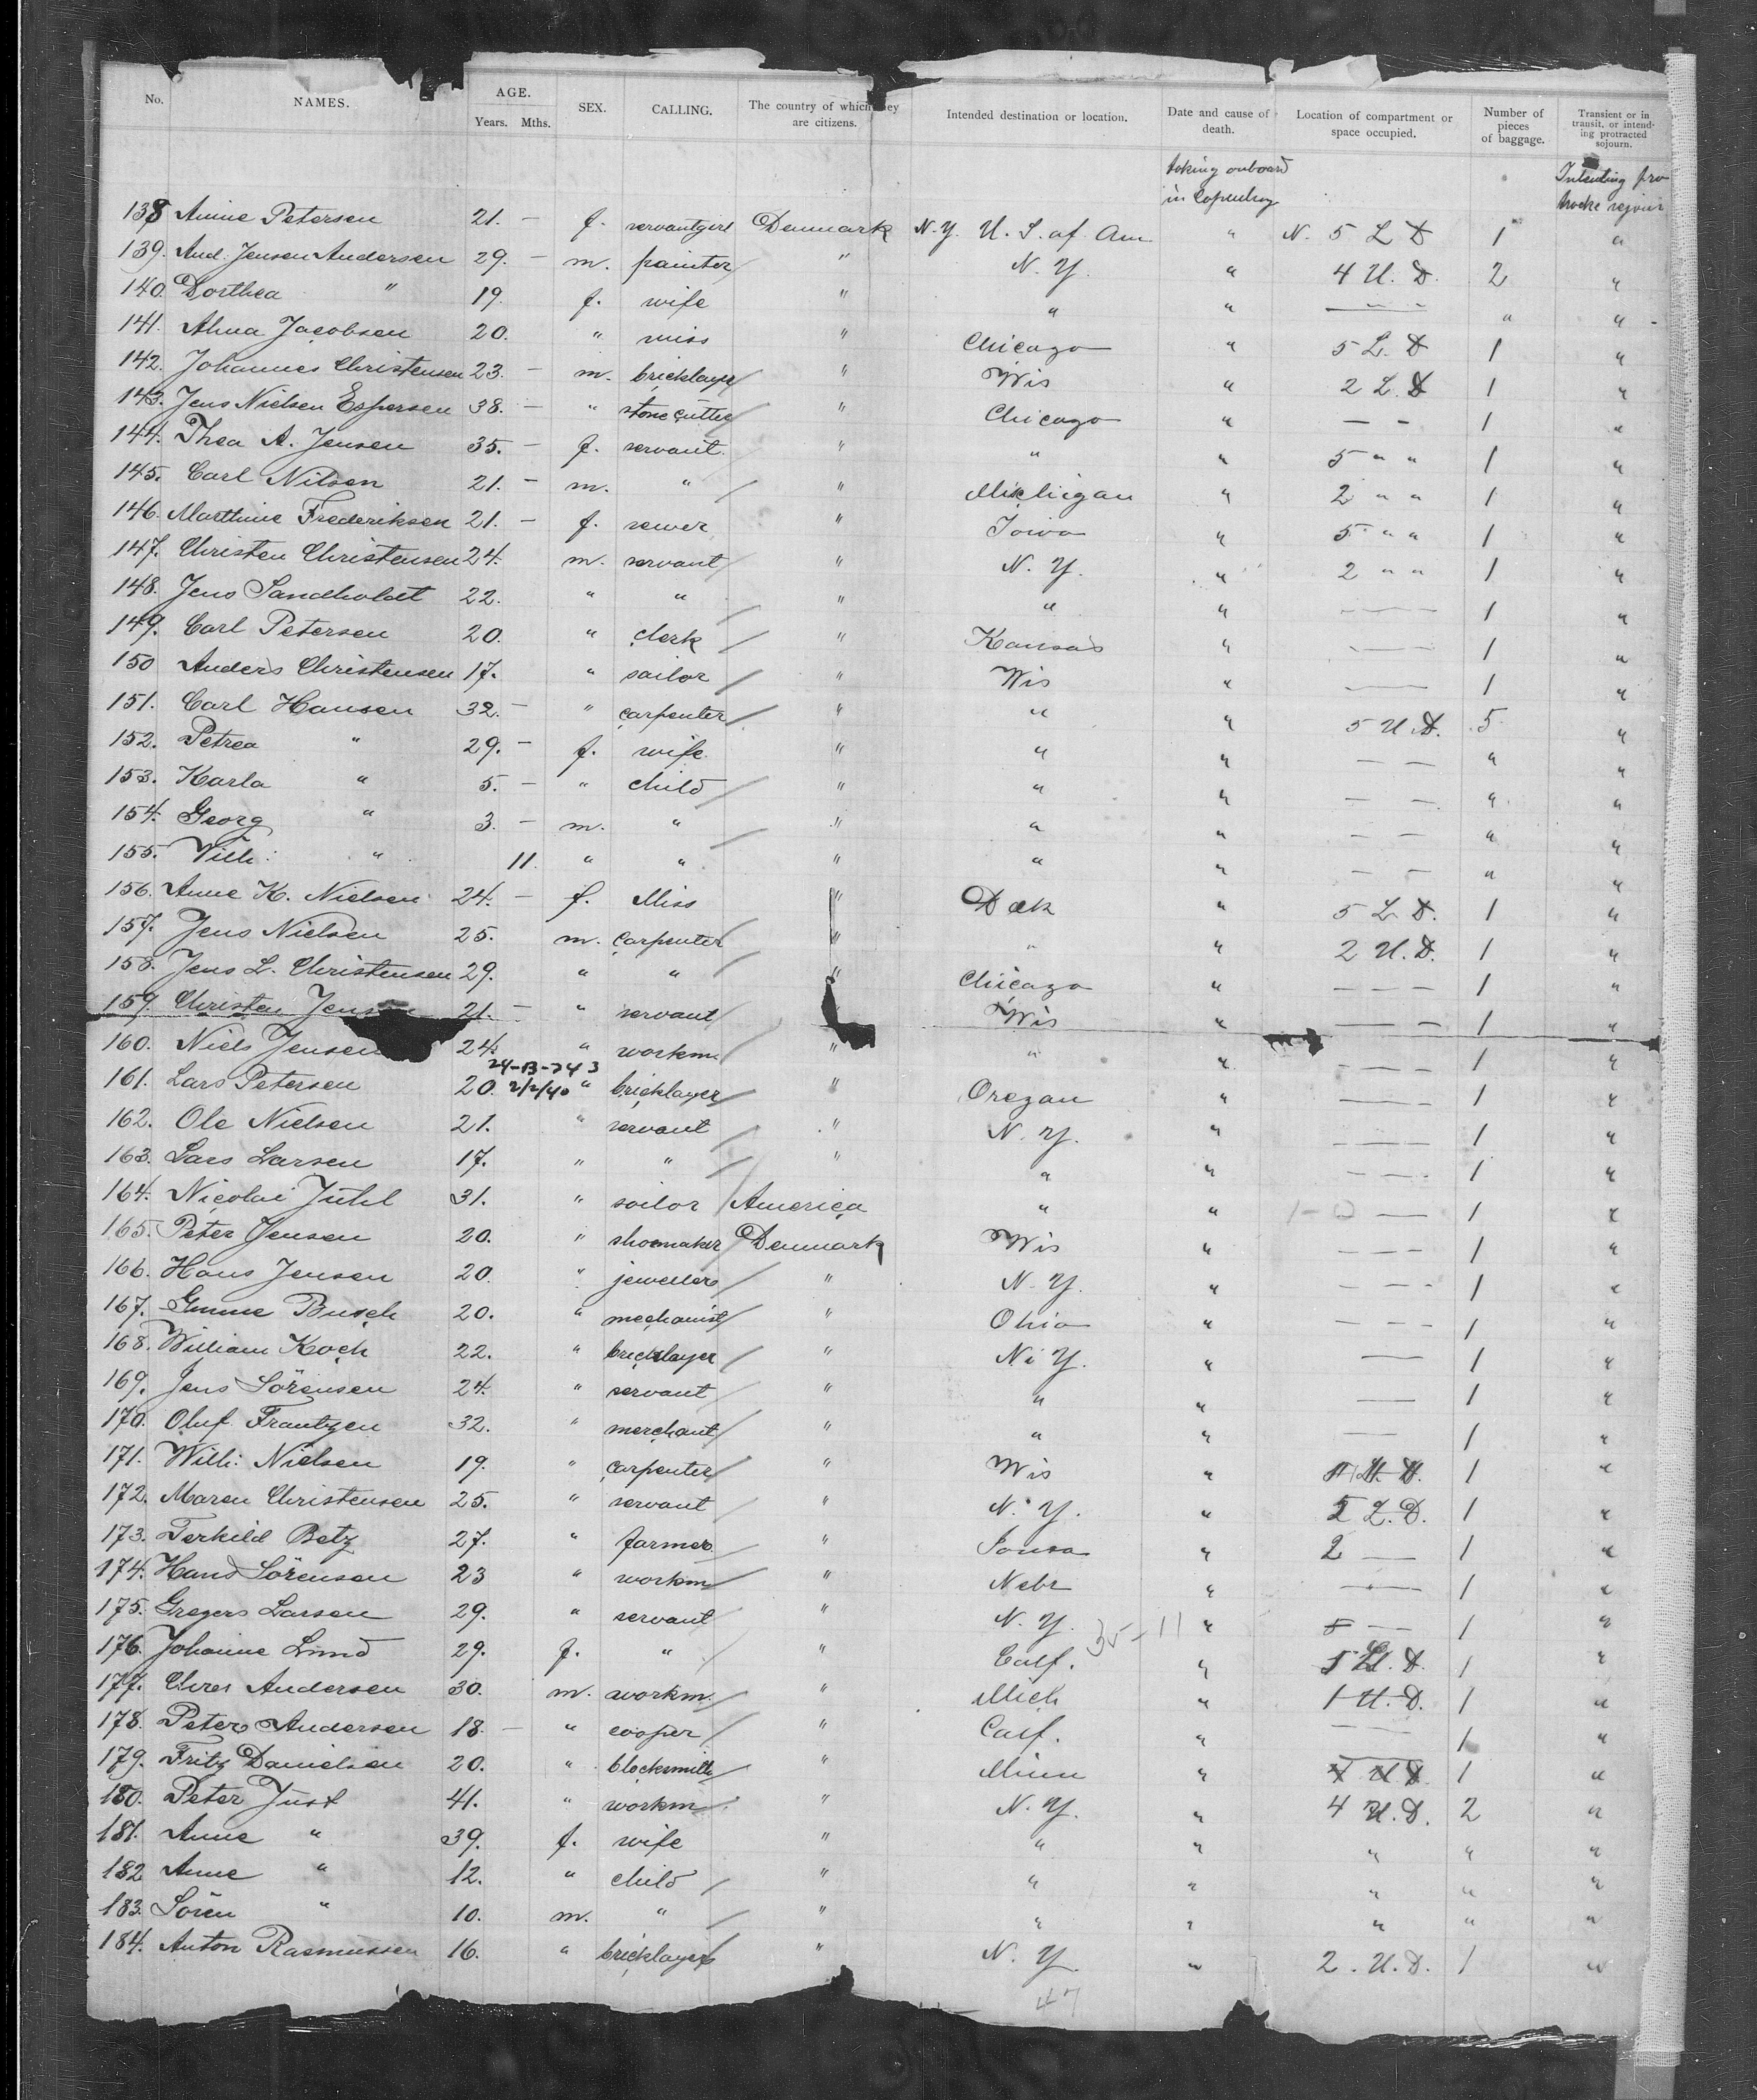 No. NAMES. AGE. Years. Mths. SEX. CALLING. The country of which they are citizens. Intended destination or location. Date and cause of death. Location of compartment or space occupied. Number of pieces of baggage. Transient or in transit, or intending protracted sojourn.
taking onboard in Copenhag Intending pro
138 Anine Petersen 21. - f. servantgirl Denmark N.Y. U. S. of Am " N. 5 L D 1 "
139. And. Jensen Andersen 29. - m. painter " N. Y. " 4 U. D. 2 "
140. Dorthea " 19. f. wife " " " — " — " "
141. Alma Jacobsen 20. " miss " Chicago " 5 L. D 1 "
142. Johannes Christensen 23. - m. bricklayer " Wis " 2 L. D 1 "
143. Jens Nielsen Espersen 38. - " stone cutter " Chicago " — — 1 "
144. Thea A. Jensen 35. - f. servant " " " 5 " " 1 "
145. Carl Nilsen 21. - m. " " Michigan " 2 " " 1 "
146. Marthine Frederiksen 21. - f. sewer " Iowa " 5 " " 1 "
147. Christen Christensen 24. m. servant " N. Y. " 2 " " 1 "
148. Jens Sandholdt 22. " " " " " — — — 1 "
149. Carl Petersen 20. " clerk " Kansas " — — — 1 "
150 Anders Christensen 17. " sailor " Wis " — — 1 "
151. Carl Hansen 32. - " carpenter " " " 5 U. D. 5 "
152. Petrea " 29. - f. wife " " " — — " "
153. Karla " 5. - " child " " " — — " "
154. Georg " 3. - m. " " " " — — " "
155. Vilh: " 11. " " " " " — — " "
156. Anne K. Nielsen 24. - f. Miss " Dak " 5 L. D. 1 "
157. Jens Nielsen 25. m. carpenter " " " 2 U. D. 1 "
158. Jens L. Christensen 29. " " " Chicago " — — — 1 "
159. Christen Jensen 21. - " servant " Wis " — — — 1 "
160. Niels Jensen 24. " workm " " " — — — 1 "
24-B-743
161. Lars Petersen 20. 2/2/40 " bricklayer " Oregan " — — — 1 "
162. Ole Nielsen 21. " servant " N. Y. " — — — 1 "
163. Lars Larsen 17. " " " " " — — — 1 "
164. Nicolai Juhl 31. " sailor America " " — 1 "
165. Peter Jensen 20. " shoemaker Denmark Wis " — — — 1 "
166. Hans Jensen 20. " jeweller " N. Y. " — — — 1 "
167. Busch 20. " mechanist " Ohio " — — — 1 "
168. William Koch 22. " bricklayer " N. Y. " — 1 "
169. Jens Sörensen 24. " servant " " " — 1 "
170. Oluf Frantzen 32. " merchant " " " — 1 "
171. Vilh: Nielsen 19. " carpenter " Wis " 1 "
172. Maren Christensen 25. " servant " N. Y. " 5 L. D. 1 "
173. Terkild Betz 27. " farmer " Iowa " 2 — 1 "
174. Hans Sörensen 23 " workm " Nebr " — — 1 "
175. Gregers Larsen 29. " servant " N. Y. 35-11 " — 1 "
176. Johanne Lund 29. f. " " Calf. " 5 L. D. 1 "
177. Andersen 30. m. workm. " Mich " 1 U. D. 1 "
178. Peter Andersen 18. - " cooper " Calf. " — 1 "
179. Fritz Danielsen 20. " blocksmith " Minn " U D. 1 "
180. Peter Just 41. " workm " N. Y. " 4 U. D. 2 "
181. Anne " 39. f. wife " " " " " "
182 Anne " 12. " child " " " " " "
183. Sören " 10. m. " " " " " " "
184. Anton Rasmussen 16. " bricklayer " N. Y. " 2. U. D. 1 "
47